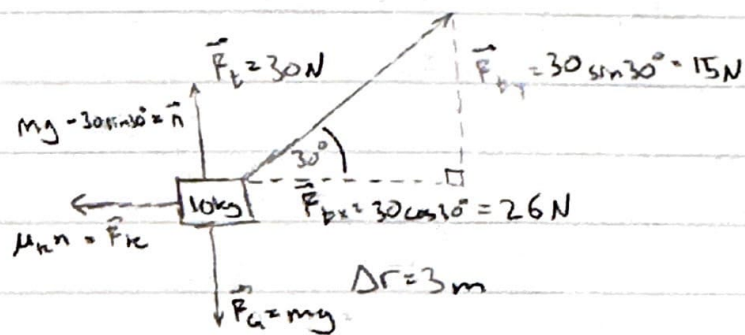 F⃗t = 30N
F⃗ty = 30 sin30° = 15N
mg - 30sin30° = n⃗
30°
10kg
F⃗tx = 30cos30° = 26N
μkn = F⃗k
Δr = 3m
F⃗G = mg